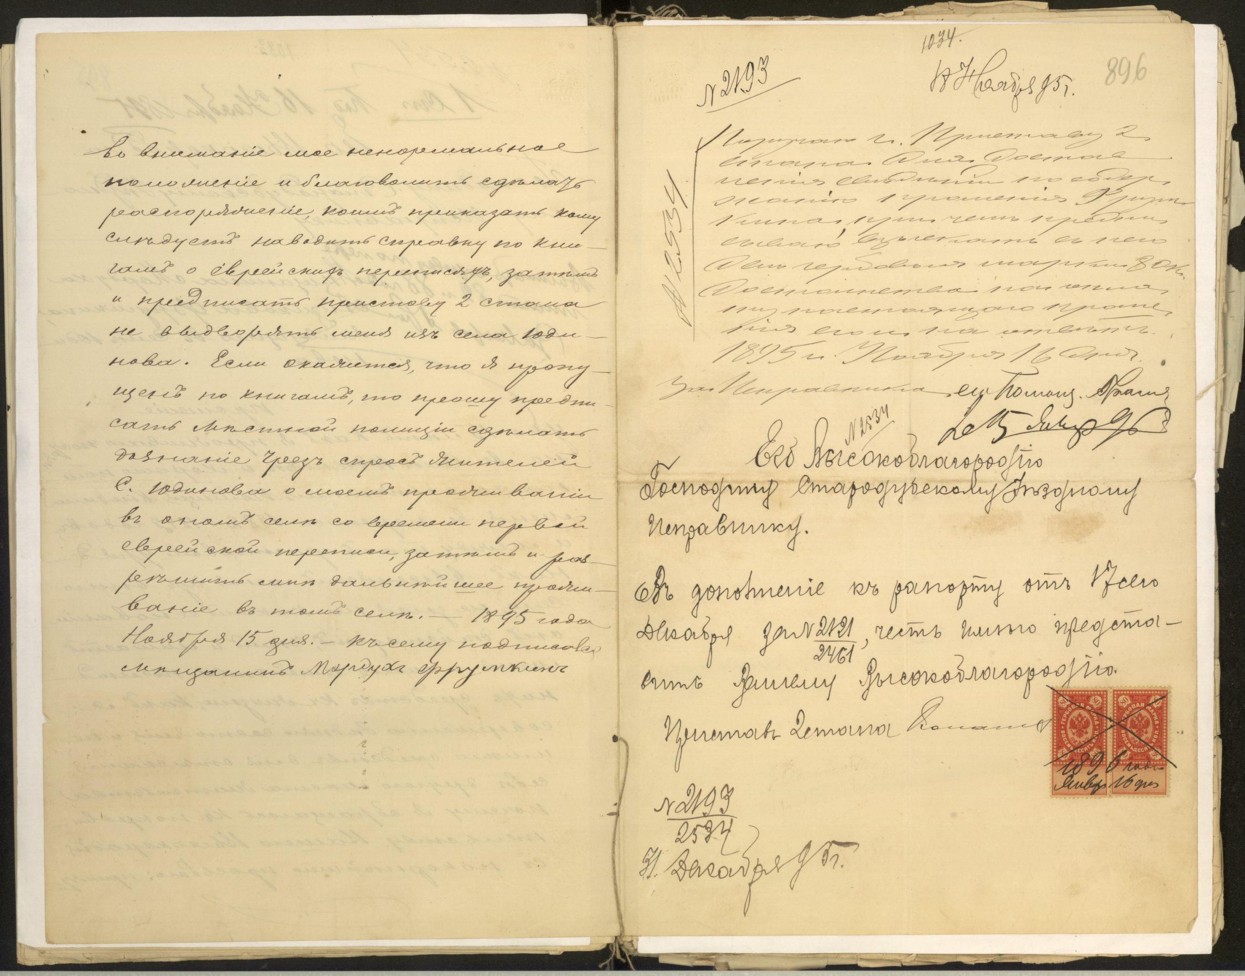 во вниманіе мое ненормальное
положеніе и благоволить сдѣлать
распоряженіе, коимъ приказать кому
слѣдуетъ наводить справку по кни-
гамъ о Еврейскихъ переписяхъ, затѣмъ
и предписать приставу 2 стана
не выдворять меня изъ села Юди-
нова. Если окажется, что я пропу-
щенъ по книгамъ, то прошу предпи-
сать мѣстной полиціи сдѣлать
дознаніе чрезъ спросъ жителей
с. Юдинова о моемъ проживаніи
въ ономъ селѣ со времени первой
еврейской переписи, затѣмъ и раз-
рѣшить мнѣ дальнѣйшее прожи-
ваніе въ томъ селѣ. — 1895 года
Ноября 15 дня. — къ сему подписовы
мѣщанинъ Мордухъ Фрумкинъ
1034.
896
N 2193
Ноября 95 г.
г. Приставу 2
стана для достав
ленія свѣденій по содер
жанію прошенія Фрум
кина, при чемъ
взыскать съ него
две гербовыя марки 80 к.
достоинства
1895 г. Ноября 16 дня.
N 2534
За Исправника
N 2534
Его Высокоблагородію
Господину Стародубскому Уѣздному
Исправнику.
Въ дополненіе къ рапорту отъ 17 сего
Декабря за N 2121/2461, честь имѣю предста-
вить Вашему Высокоблагородію.
Приставъ 2 стана
1896 года
Январ. 16 дня
N 2193
2534
Декабря 95 г.